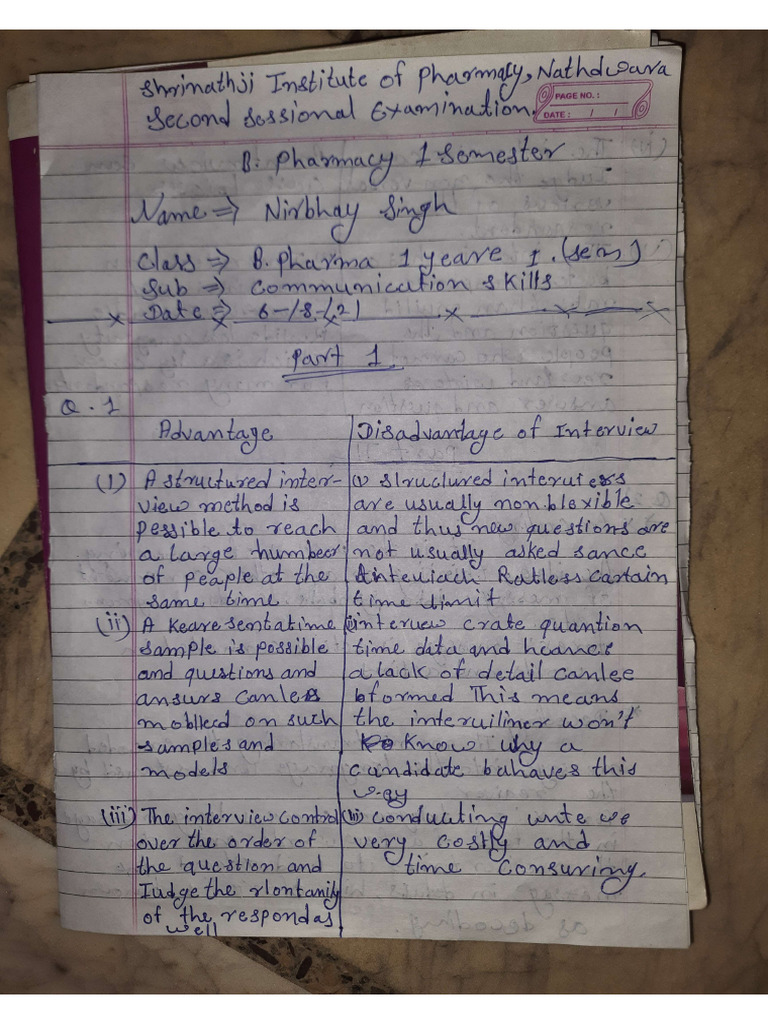 Shrinathji Institute of pharmacy, Nathdwara
Second Sessional Examination.
PAGE NO. :
DATE : / /
B. Pharmacy 1 Semester
Name ⇒ Nirbhay Singh
Class ⇒ B. Pharma 1 yeare I. (sem)
Sub ⇒ Communication skills
Date ⇒ 6-/8-/21
Part 1.
Q. 1
Advantage
(1) A structured inter-
view method is
pessible to reach
a large humbeer
of peaple at the
same time.
(ii) A Kearesentatime
sample is possible
and questions and
ansurs Canles
mobllecd on such
samples and
models
(iii) The interview control
over the order of
the question and
Iudge the
of the respond as
well
Disadvantage of Interview
(i) structured interuiess
are usually non.blexible
and thus new questions are
not usually asked sance
Ratless Cartain
time limit
interuew crate quantion
time data and hcance
a lack of detail canlee
bformed This means
the interuiliner won't
Know why a
candidate bahaves this
way
(iii) conducting unte we
very costly and
time consuring.